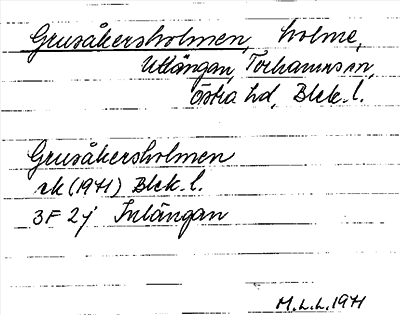 Grusåkersholmen, holme,
Utlängan, Torhamns sn,
Östra hd, Blek. l.
Grusåkersholmen
rk (1971) Blek. l.
3F 2j Inlängan
M.L.L. 1971